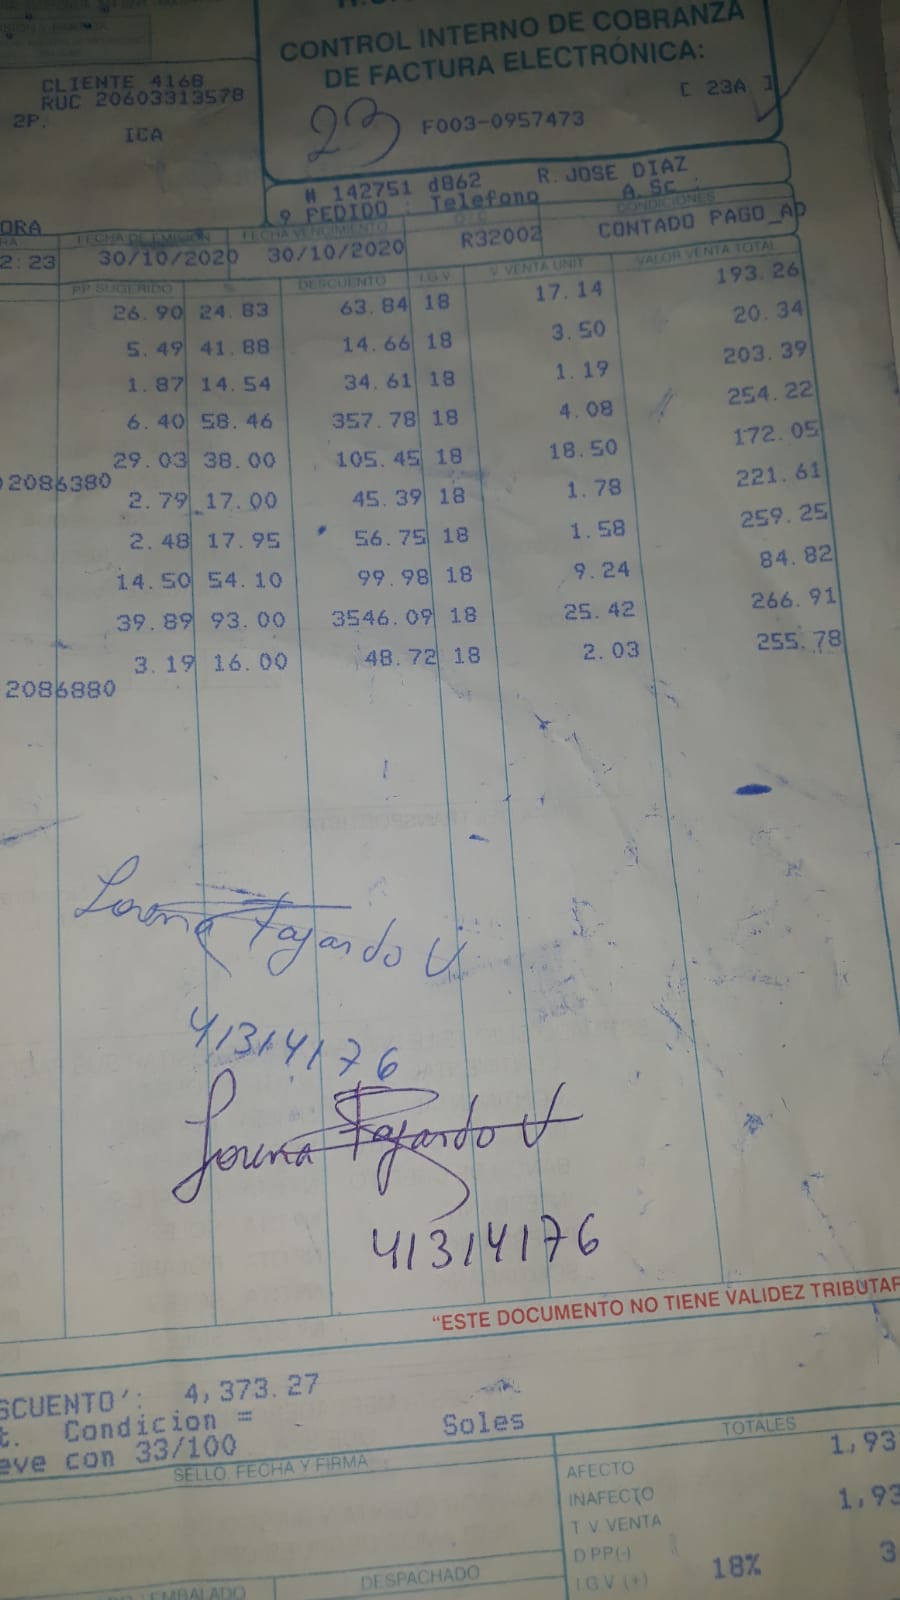 CONTROL INTERNO DE COBRANZA
DE FACTURA ELECTRÓNICA:
[ 23A ]
23 F003-0957473
CLIENTE 4168
RUC 20603313578
2P.
ICA
# 142751 d862 R. JOSE DIAZ
9 PEDIDO : Telefono A. Sc
ORA
FECHA DE EMISIÓN FECHA VENCIMIENTO CONDICIONES
2:23 30/10/2020 30/10/2020 R32002 CONTADO PAGO_AP
PP SUGERIDO % DESCUENTO I.G.V. V. VENTA UNIT VALOR VENTA TOTAL
26.90 24.83 63.84 18 17.14 193.26
5.49 41.88 14.66 18 3.50 20.34
1.87 14.54 34.61 18 1.19 203.39
6.40 58.46 357.78 18 4.08 254.22
29.03 38.00 105.45 18 18.50 172.05
2086380
2.79 17.00 45.39 18 1.78 221.61
2.48 17.95 56.75 18 1.58 259.25
14.50 54.10 99.98 18 9.24 84.82
39.89 93.00 3546.09 18 25.42 266.91
3.19 16.00 48.72 18 2.03 255.78
2086880
Lorena Fajardo V
41314176
Lorena Fajardo V
41314176
"ESTE DOCUMENTO NO TIENE VALIDEZ TRIBUTAR
SCUENTO': 4,373.27
t. Condicion =
eve con 33/100 Soles
SELLO, FECHA Y FIRMA
TOTALES
AFECTO 1,93
INAFECTO
T.V. VENTA 1,93
D PP(-)
I G V (+) 18% 3
EMBALADO DESPACHADO